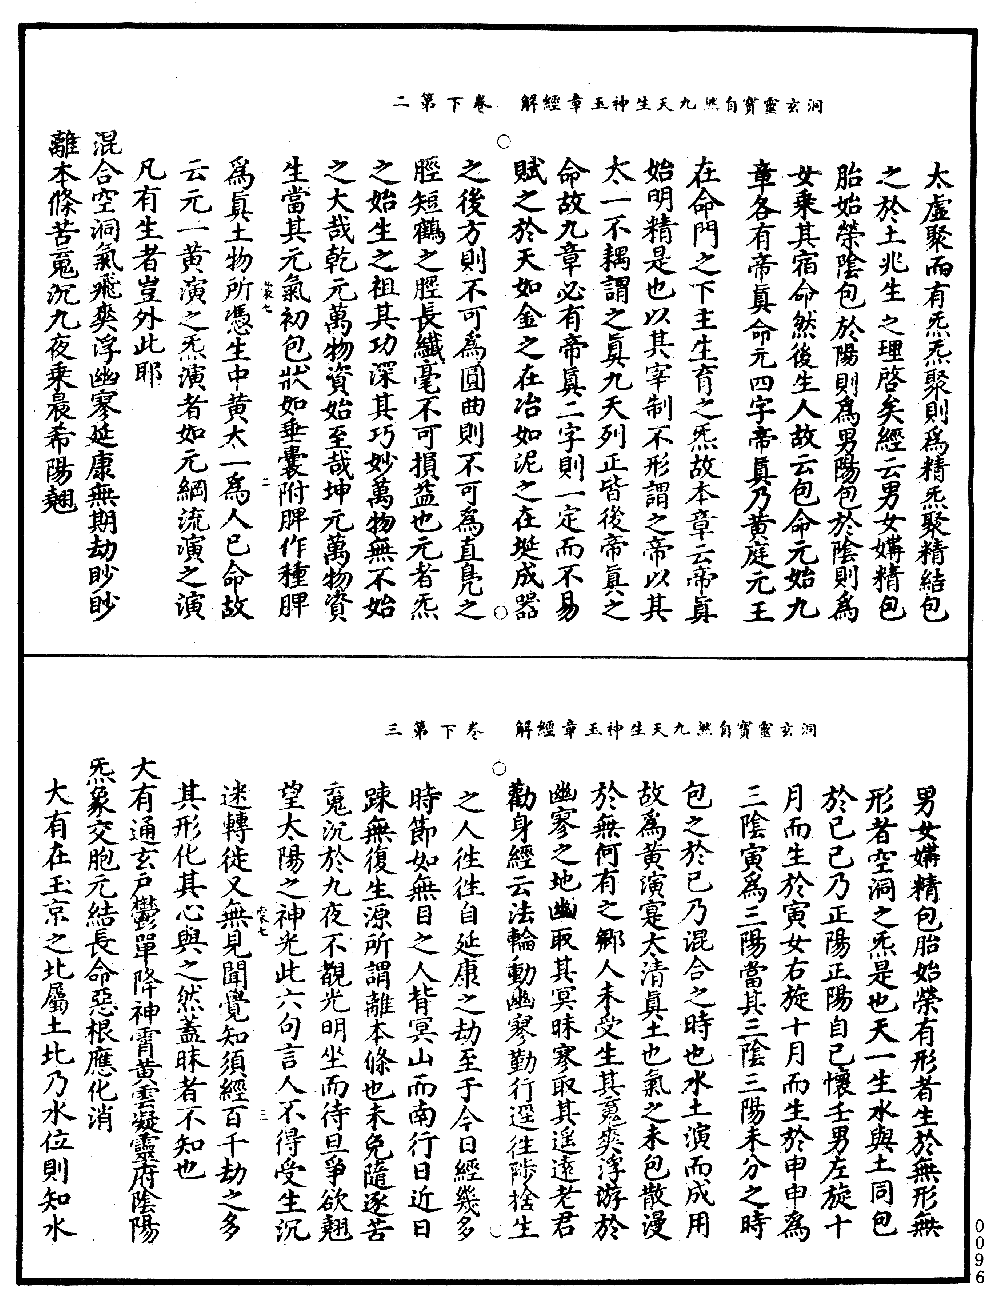 洞玄靈寶自然九天生神玉章經解　卷下第二
太虛聚而有炁炁聚則為精炁聚精結包
之於土兆生之理啓矣經云男女媾精包
胎始榮陰包於陽則為男陽包於陰則為
女乘其宿命然後生人故云包命元始九
章各有帝真命元四字帝真乃黃庭元王
在命門之下主生育之炁故本章云帝真
始明精是也以其宰制不形謂之帝以其
太一不耦謂之真九天列正皆後帝真之
命故九章必有帝真二字則一定而不易
賦之於天如金之在冶如泥之在埏成器
之後方則不可為圓曲則不可為直鳧之
脛短鶴之脛長纖毫不可損益也元者炁
之始生之祖其功深其巧妙萬物無不始
之大哉乾元萬物資始至哉坤元萬物資
生當其元氣初包狀如垂囊附脾作種脾
為真土物所憑生中黃太一為人已命故
云元一黃演之炁演者如元綱流演之演
凡有生者豈外此耶
混合空洞氣飛爽浮幽寥延康無期劫眇眇
離本條苦䰟沉九夜乗晨希陽翹
洞玄靈寶自然九天生神玉章經解　卷下第三
男女媾精包胎始榮有形者生於無形無
形者空洞之炁是也天一生水與土同包
於己己乃正陽正陽自己懷壬男左旋十
月而生於寅女右旋十月而生於申申為
三陰寅為三陽當其三陰三陽未分之時
包之於己乃混合之時也水土演而成用
故為黃演寔大清真土也氣之未包散漫
於無何有之鄉人未受生其䰟爽浮游於
幽寥之地幽取其冥昧寥取其遥遠老君
勸身經云法輪動幽寥勤行逕往陟捨生
之人往往自延康之劫至于今日經幾多
時節如無目之人背冥山而南行日近日
踈無復生源所謂離本條也未免隨逐苦
䰟沉於九夜不觀光明坐而待旦爭欲翹
望太陽之神光此六句言人不得受生沉
迷轉徙又無見聞覺知須經百千劫之多
其形化其心與之然蓋昧者不知也
大有通玄戸鬱單降神霄黃雲凝靈府陰陽
炁象交胞元結長命惡根應化消
大有在玉京之北屬土北乃水位則知水
0096